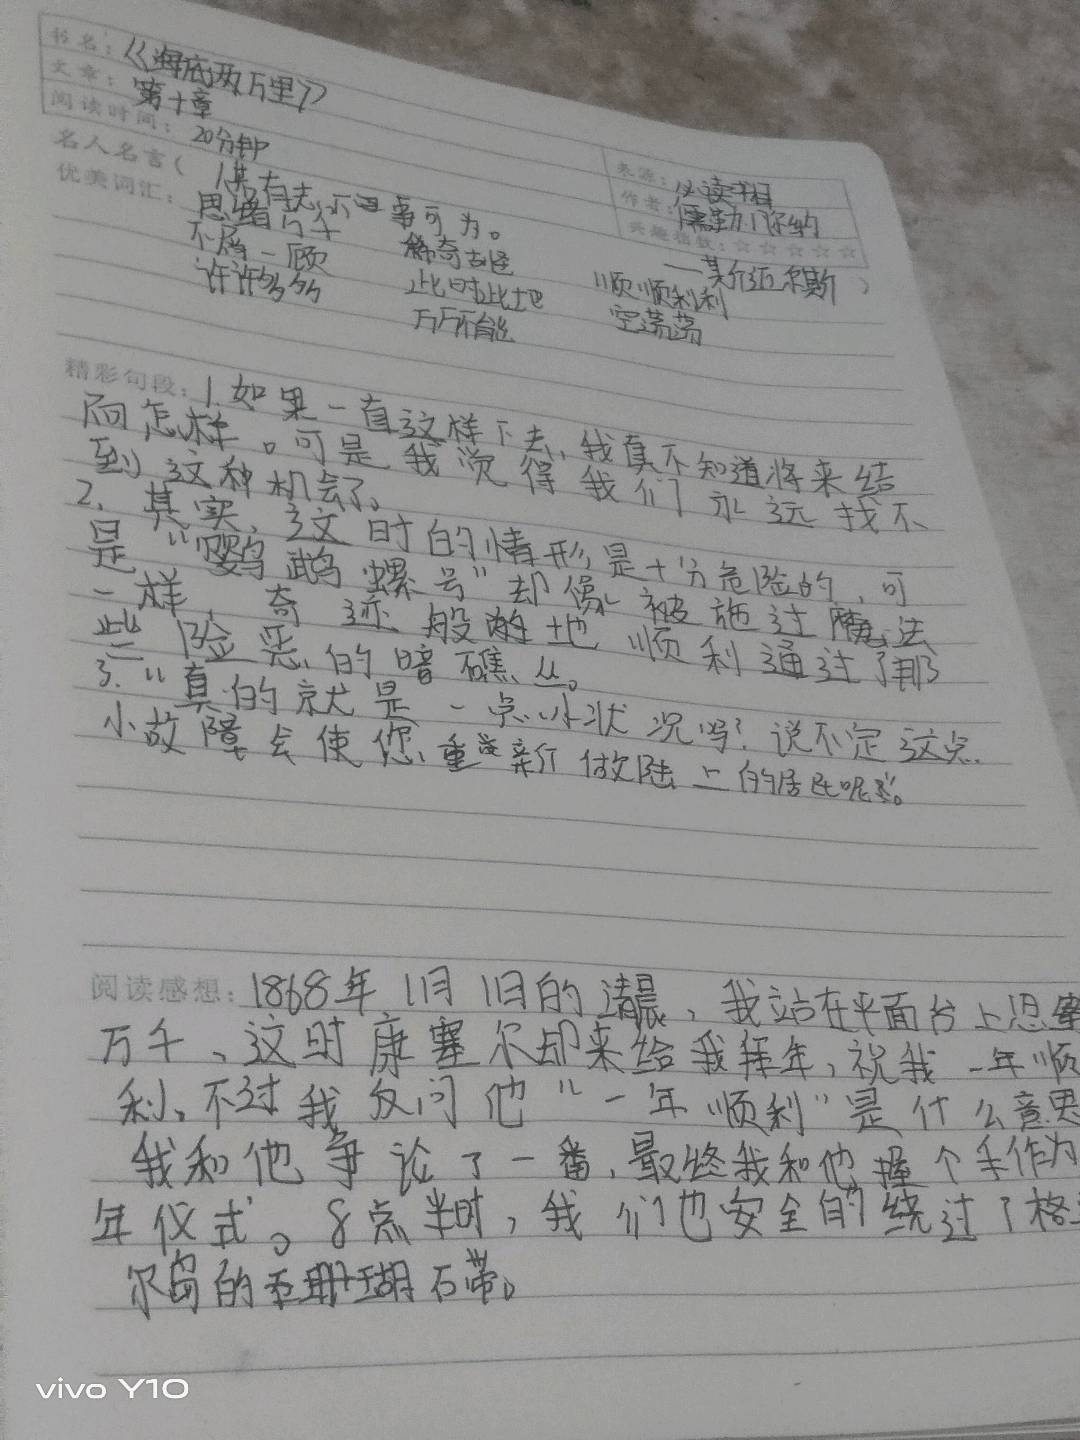 书名：《海底两万里》
文章：第十章
阅读时间：20分钟
来源：必读书目
作者：儒勒·凡尔纳
兴趣指数：☆☆☆☆☆
名人名言（ 事可为。
——莱尔 尔斯）
优美词汇：思绪万千 稀奇古怪 顺顺利利
不屑一顾 此时此地 空荡荡
许许多多 万不能
精彩句段：1.如果一直这样下去，我真不知道将来结
局怎样。可是我觉得我们永远找不
到这种机会了。
2.其实，这时的情形是十分危险的，可
是“鹦鹉螺号”却像被施过魔法
一样，奇迹般 地顺利通过了那
些险恶的暗礁丛。
3.“真的就是一点小状况吗？说不定这点
小故障会使您重新做陆上的居民呢”。
阅读感想：1868年1月1日的清晨，我站在平面台上思绪
万千、这时康塞尔却来给我拜年，祝我一年顺
利。不过我反问他“一年顺利”是什么意思
我和他争论了一番，最终我和他握个手作为
年仪式。8点半时，我们也安全的绕过了格
尔岛的 珊瑚石带。
vivo Y10